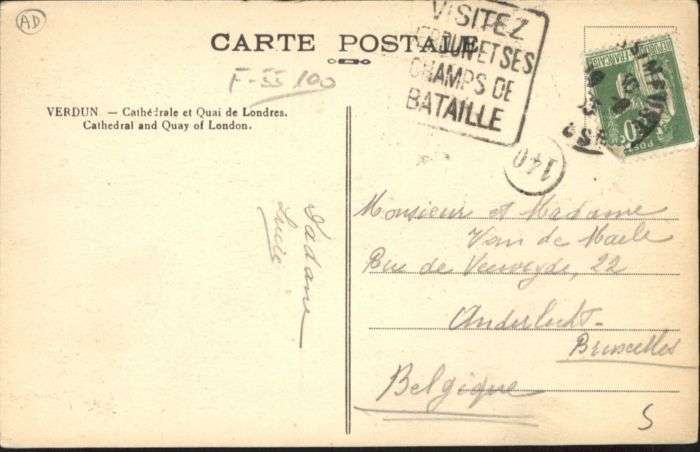 AD
CARTE POSTALE
F-55 100
VERDUN. — Cathédrale et Quai de Londres.
Cathedral and Quay of London.
VISITEZ
VERDUN ET SES
CHAMPS DE
BATAILLE
140
Lucie
Monsieur et Madame
Van de
Rue de 22
Anderlecht-
Bruxelles
Belgique
S